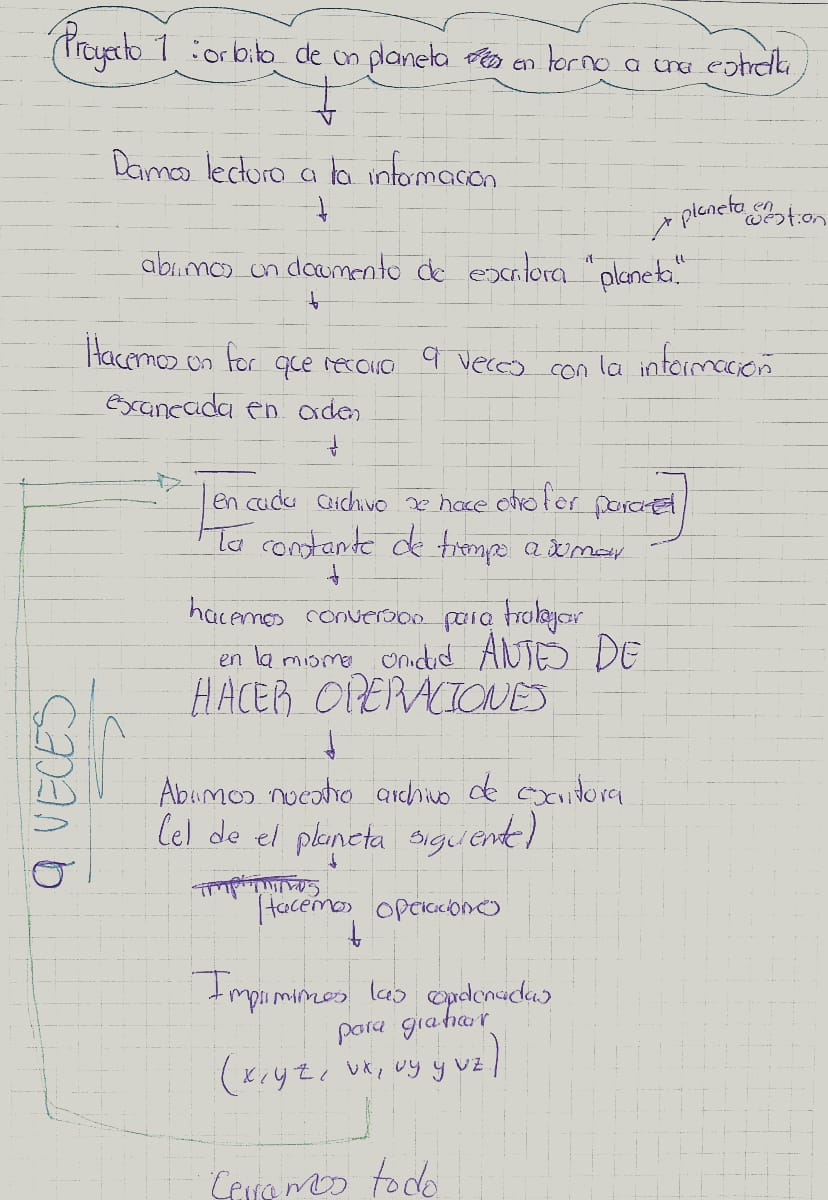 Proyecto 1 : orbita de un planeta en torno a una estrella
Damos lectura a la informacion
planeta en cuestion
abrimos un documento de escritura "planeta."
Hacemos un for que recorra 9 veces con la información
escaneada en orden
en cada archivo se hace otro for para el
la constante de tiempo a sumar
hacemos conversion para trabajar
en la misma unidad ANTES DE
HACER OPERACIONES
9 VECES
Abrimos nuestro archivo de escritura
(el de el planeta siguiente)
imprimimos
Hacemos operaciones
Imprimimos las coordenadas
para graficar
(x, y z, vx, vy y vz)
Cerramos todo